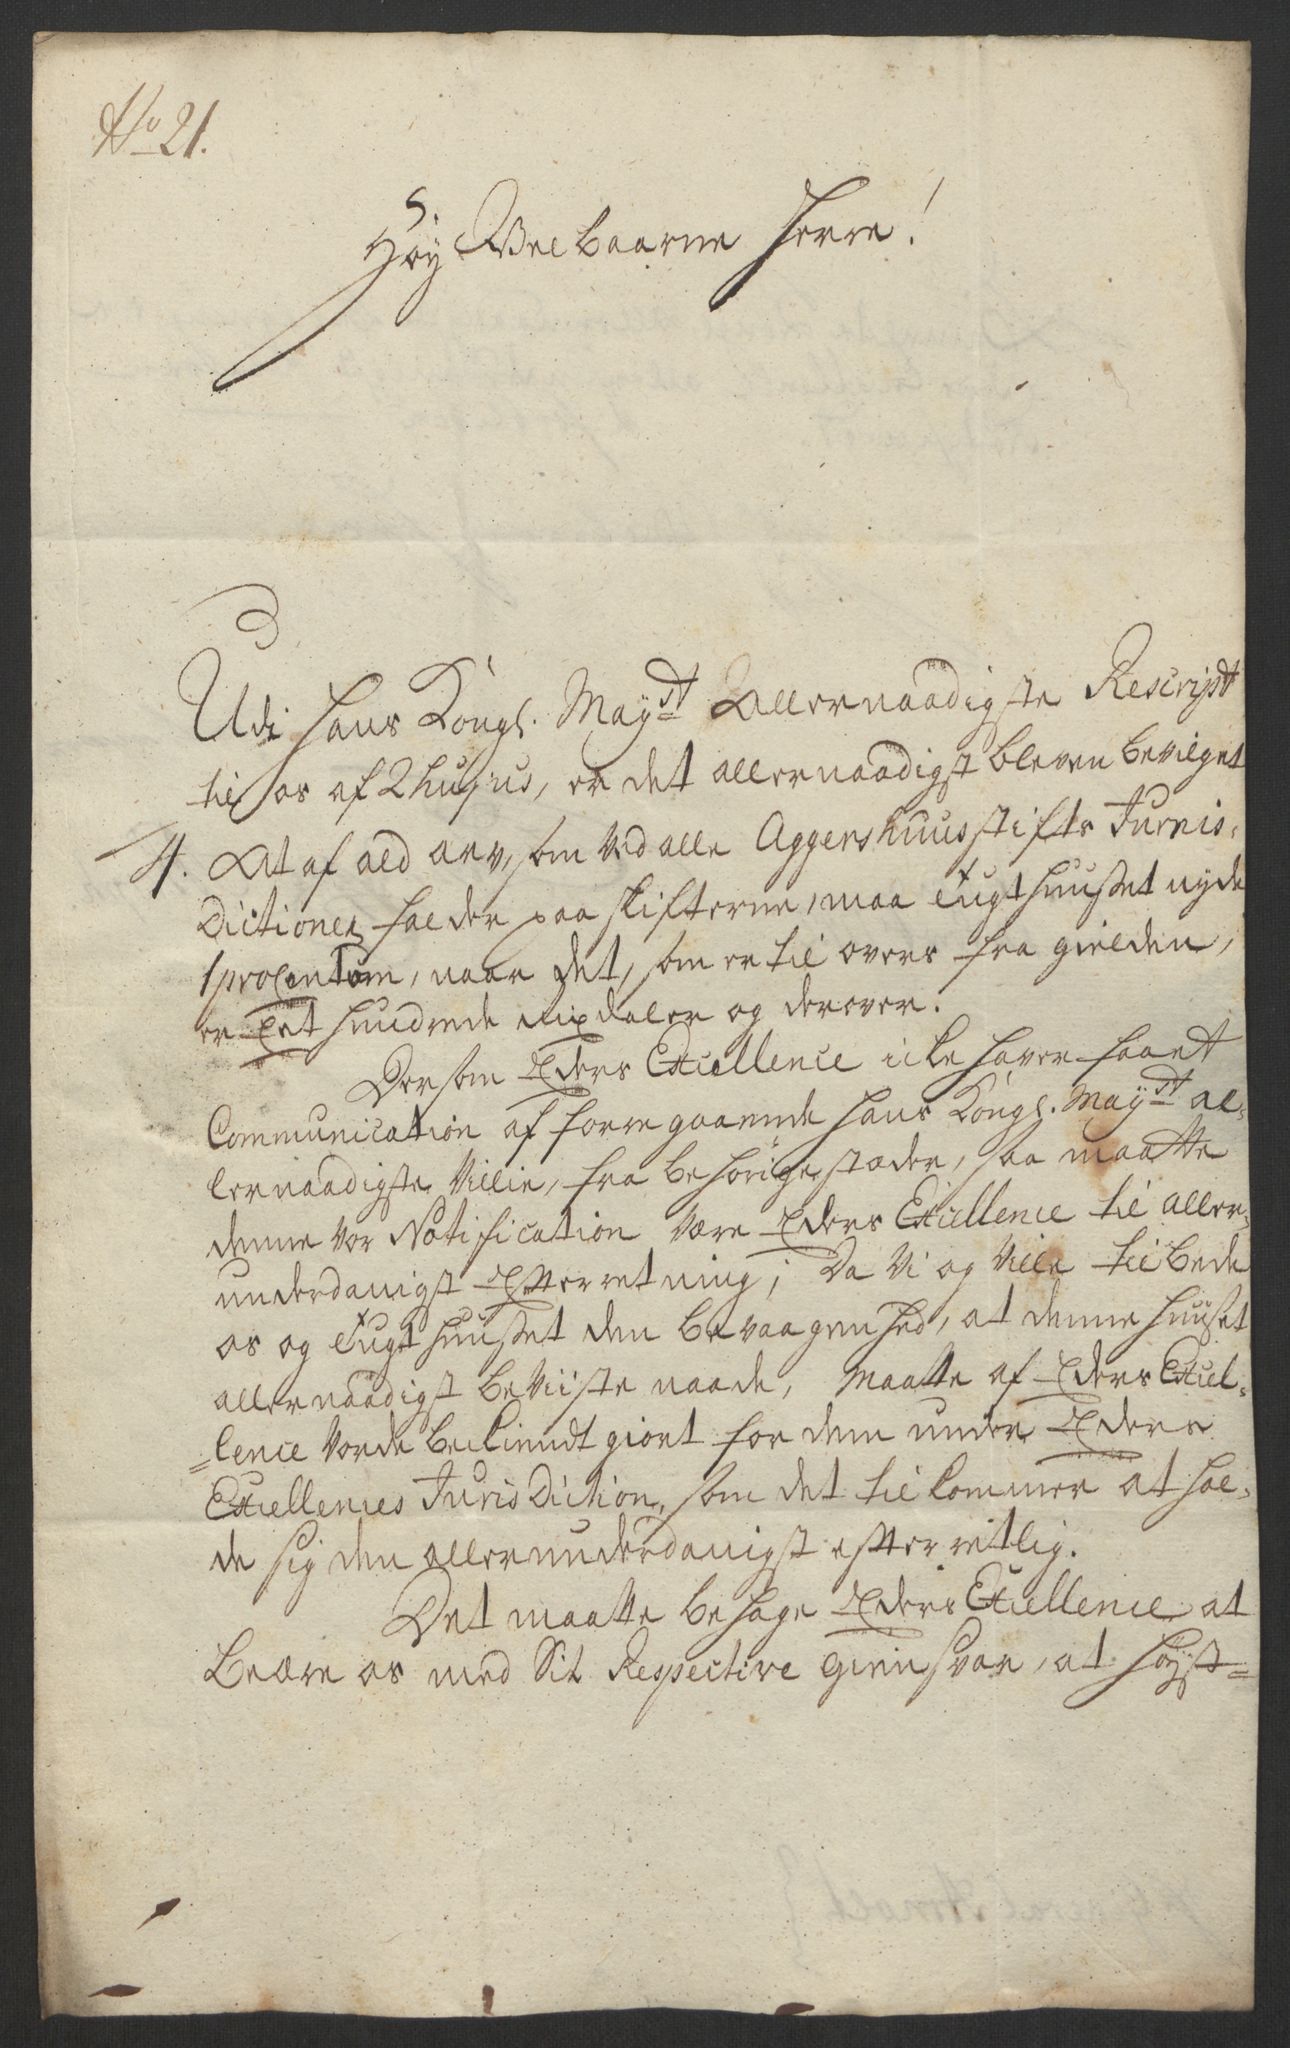 No 21.
Høy Velbaarne Herre!
Udi Hans Kongl. Mayst Allernaadigste Rescript
til os af 2 hujus, er det allernaadigst bleven bevilget
4. At af ald arv, som ved alle Aggershuus stifts Juris-
Dictioner falder paa skifterne, maa Tugthuuset nyde
1 proCentum, naar det, som er til overs fra gielden,
er Eet hundrede Rixdaler og derover.
Dersom Eders Excellence icke haver faaet
Communication af forregaaende Hans Kongl. Mayst al-
lernaadigste Villie, fra behørige stæder, saa maatte
denne vor Notification være Eders Excellence til aller-
underdanigst Efterretning; Da Vi og Ville tilbede
os og Tugthuuset den bevaagenhed, at denne huuset
allernaadigst beviiste naade, maatte af Eders Excel-
lence vorde bekiendtgiort for dem under Eders
Excellences JurisDiction, som det tilkommer at hol-
de sig den allerunderdanigst efterretlig.
Det maatte behage Eders Excellence at
beære os med Sit Respective gienswar, at høyst-